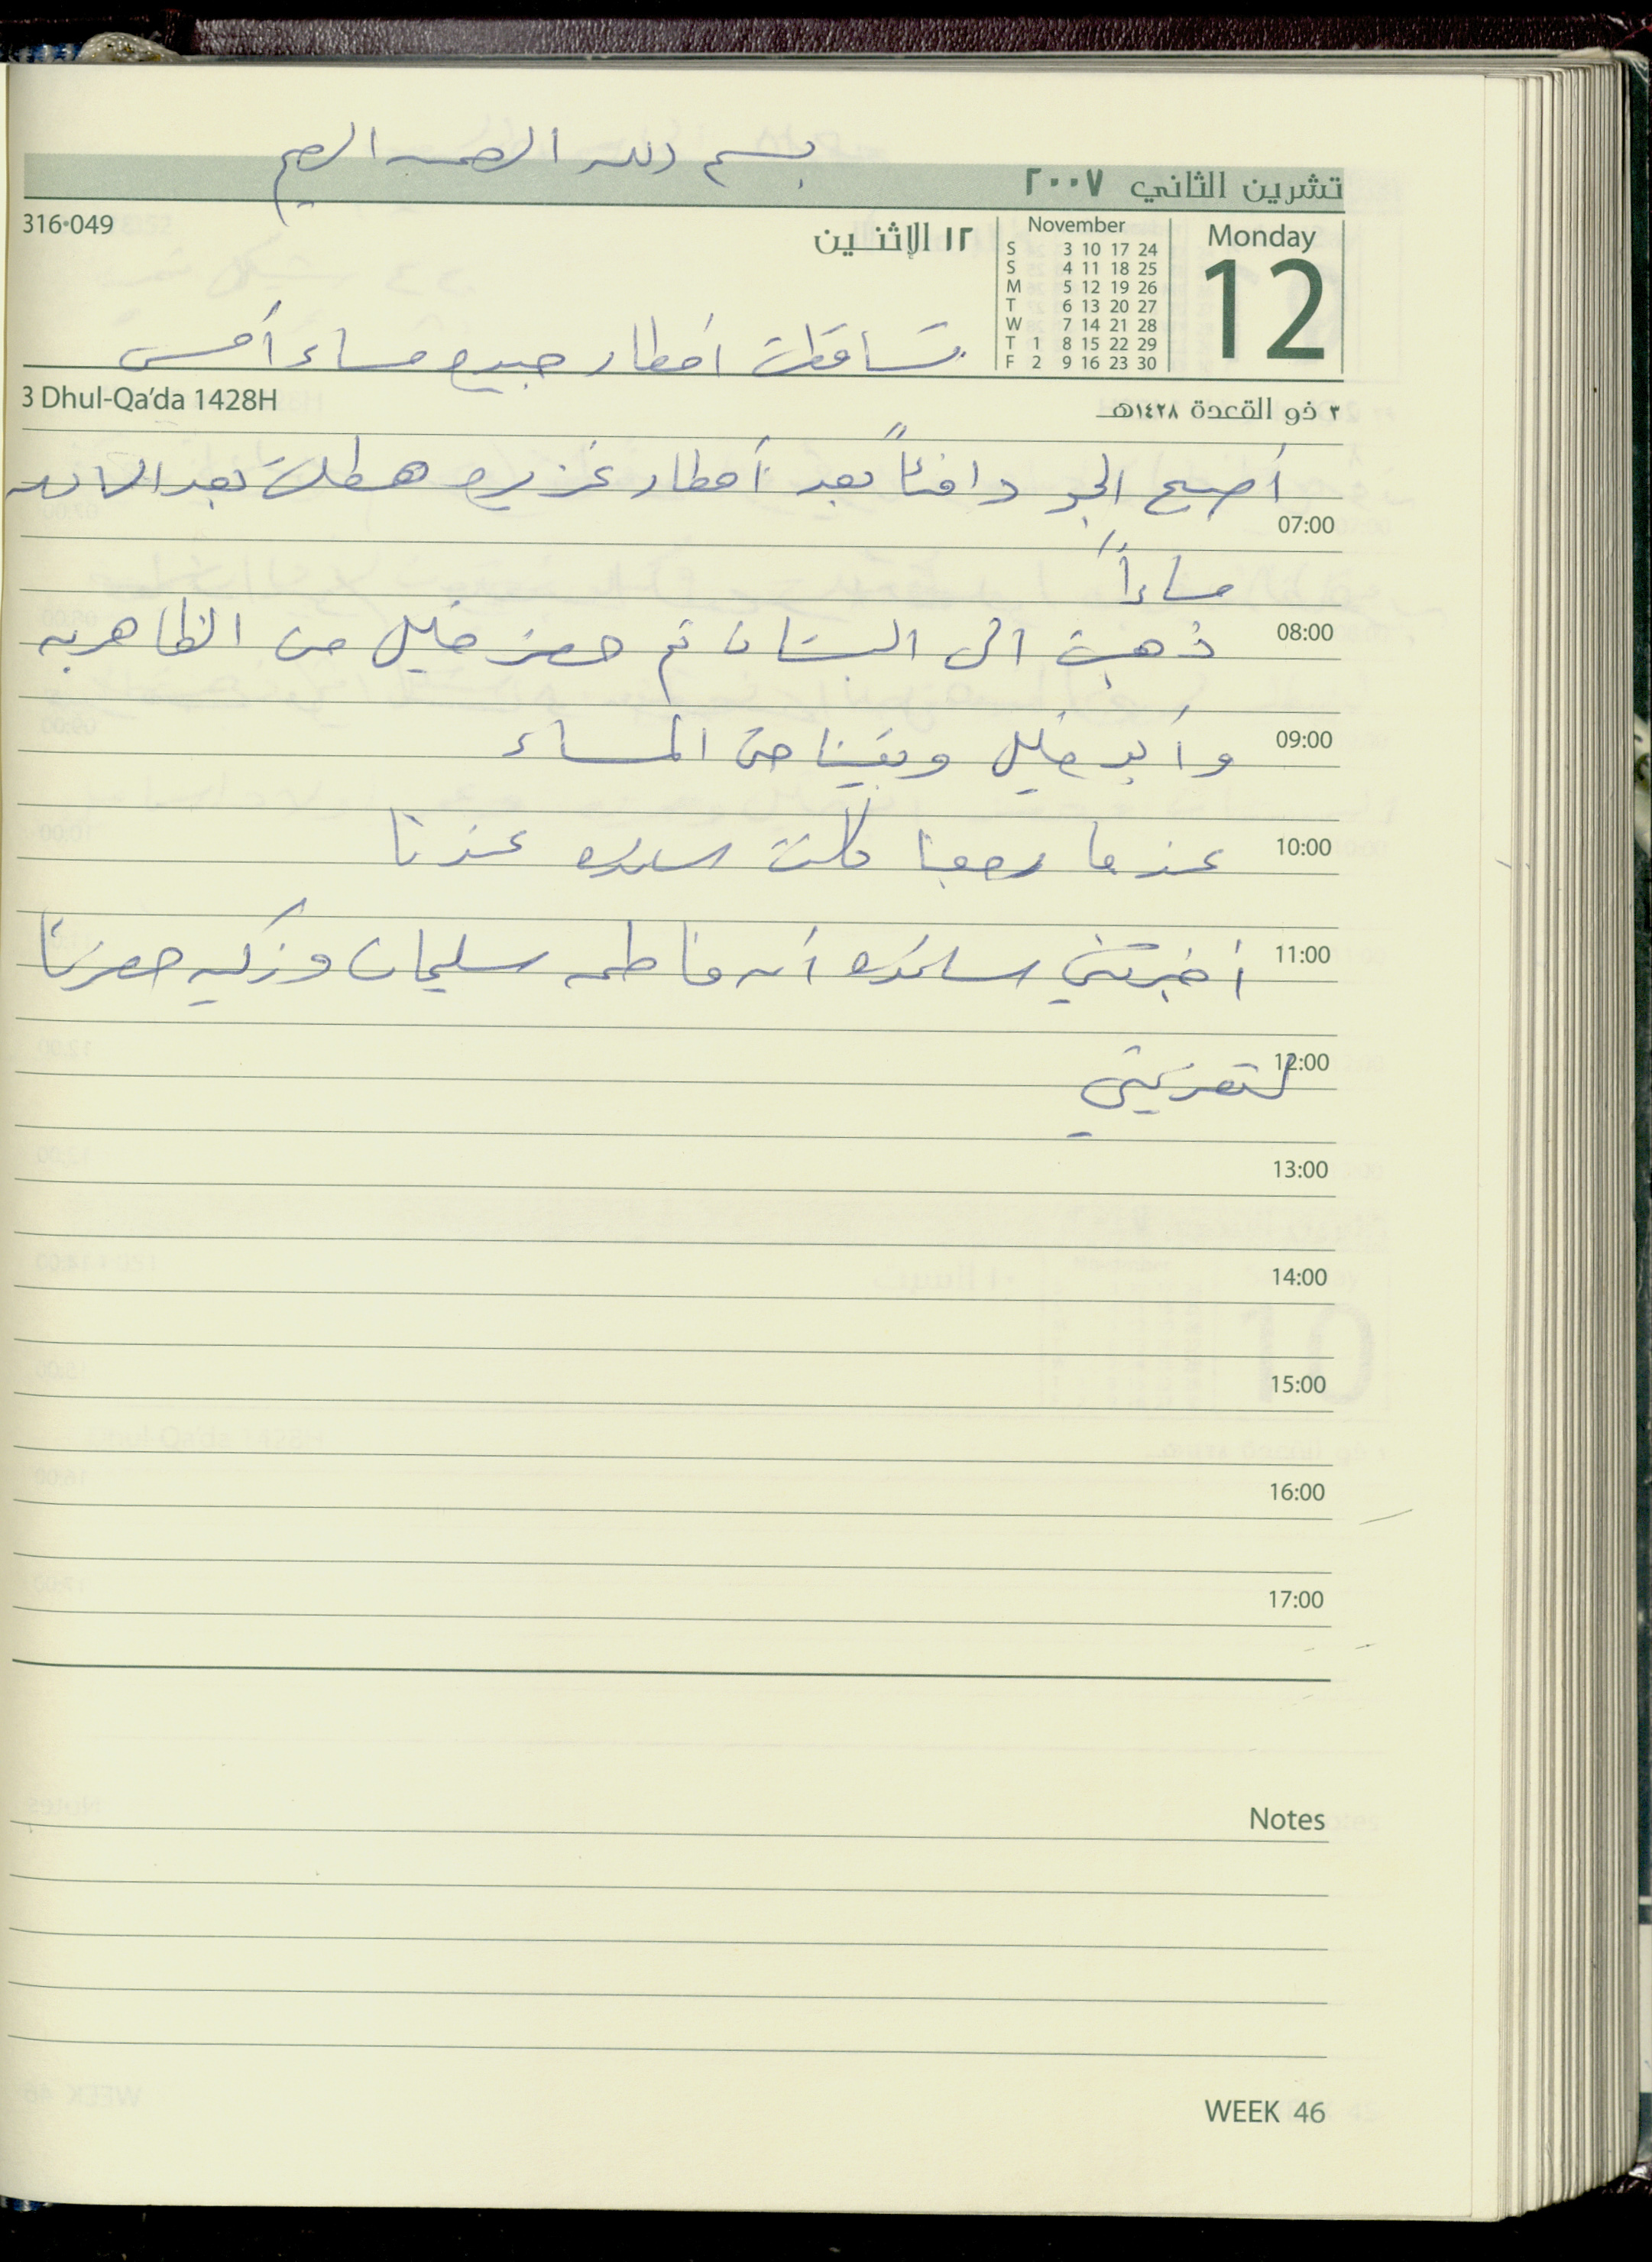 بسم الله الرحمن الرحيم
تشرين الثاني ٢٠٠٧
Monday
12
November
S 3 10 17 24
S 4 11 18 25
M 5 12 19 26
T 6 13 20 27
W 7 14 21 28
T 1 8 15 22 29
F 2 9 16 23 30
١٢ الإثنين
316·049
تساقطت امطار جيده مساء أمس
٣ ذو القعدة ١٤٢٨هـ
3 Dhul-Qa'da 1428H
أصبح الجو دافئاً بعد أمطار غزيره هطلت بعد
07:00
مساءاً
08:00 ذهبت الى البستان ثم حضر خليل من الظاهريه
09:00 وأبو خليل وبقينا حتى المساء
10:00 عندما رجعنا كانت عندنا
11:00 أخبرتني أن فاطمه سليمان وزكيه حضرتا
12:00 لتعزيتي
13:00
14:00
15:00
16:00
17:00
Notes
WEEK 46